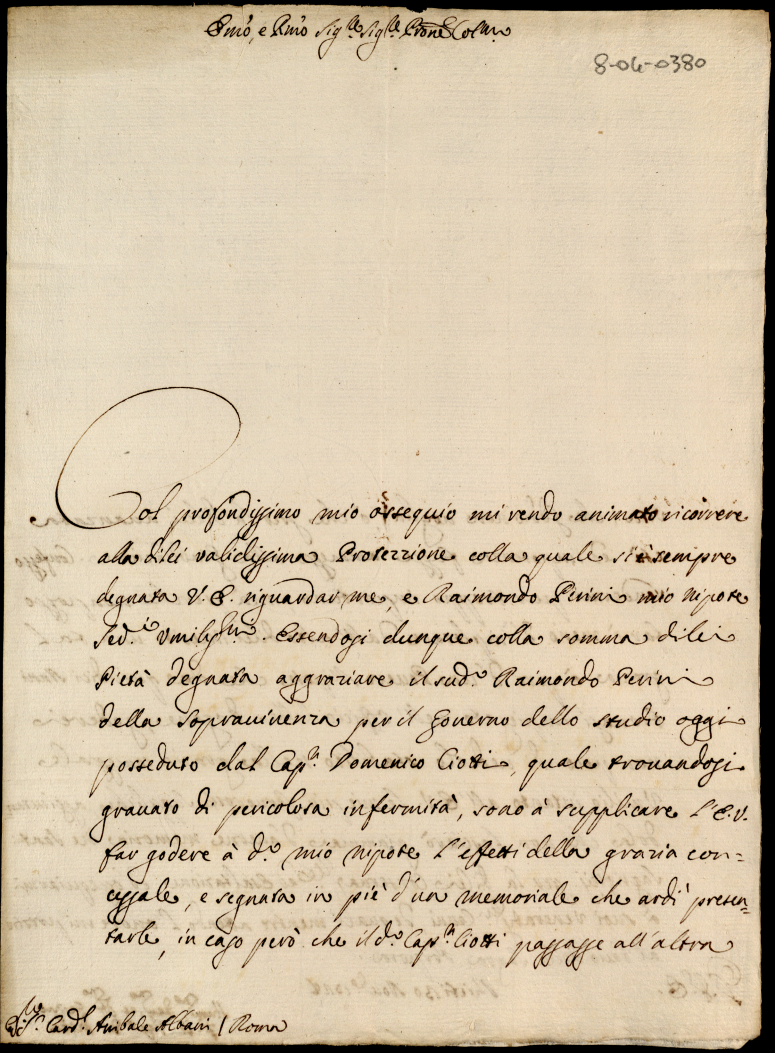 Emo, e Rmo Sigre Sigre Prone Colmo
8-04-0380
Col profondissimo mio ossequio mi rendo animato ricorrere
alla di lei validissima Protezzione colla quale si è sempre
degnata V. E. riguardar me, e Raimondo Perini mio nipote
Sedi Umilissimi. Essendosi dunque colla somma di lei
Pietà degnata aggraziare il sudo Raimondo Perini
della Sopravivenza per il Governo dello studio oggi
posseduto dal Capn Domenico Ciotti, quale trovandosi
gravato di pericolosa infermità, sono à supplicare l'E.V.
far godere à do mio nipote l'effetti della grazia con=
cessale, e segnata in piè d'un memoriale che ardì presen=
tarle, in caso però che il do Capn Ciotti passasse all'altra
Cardl Anibale Albani / Roma